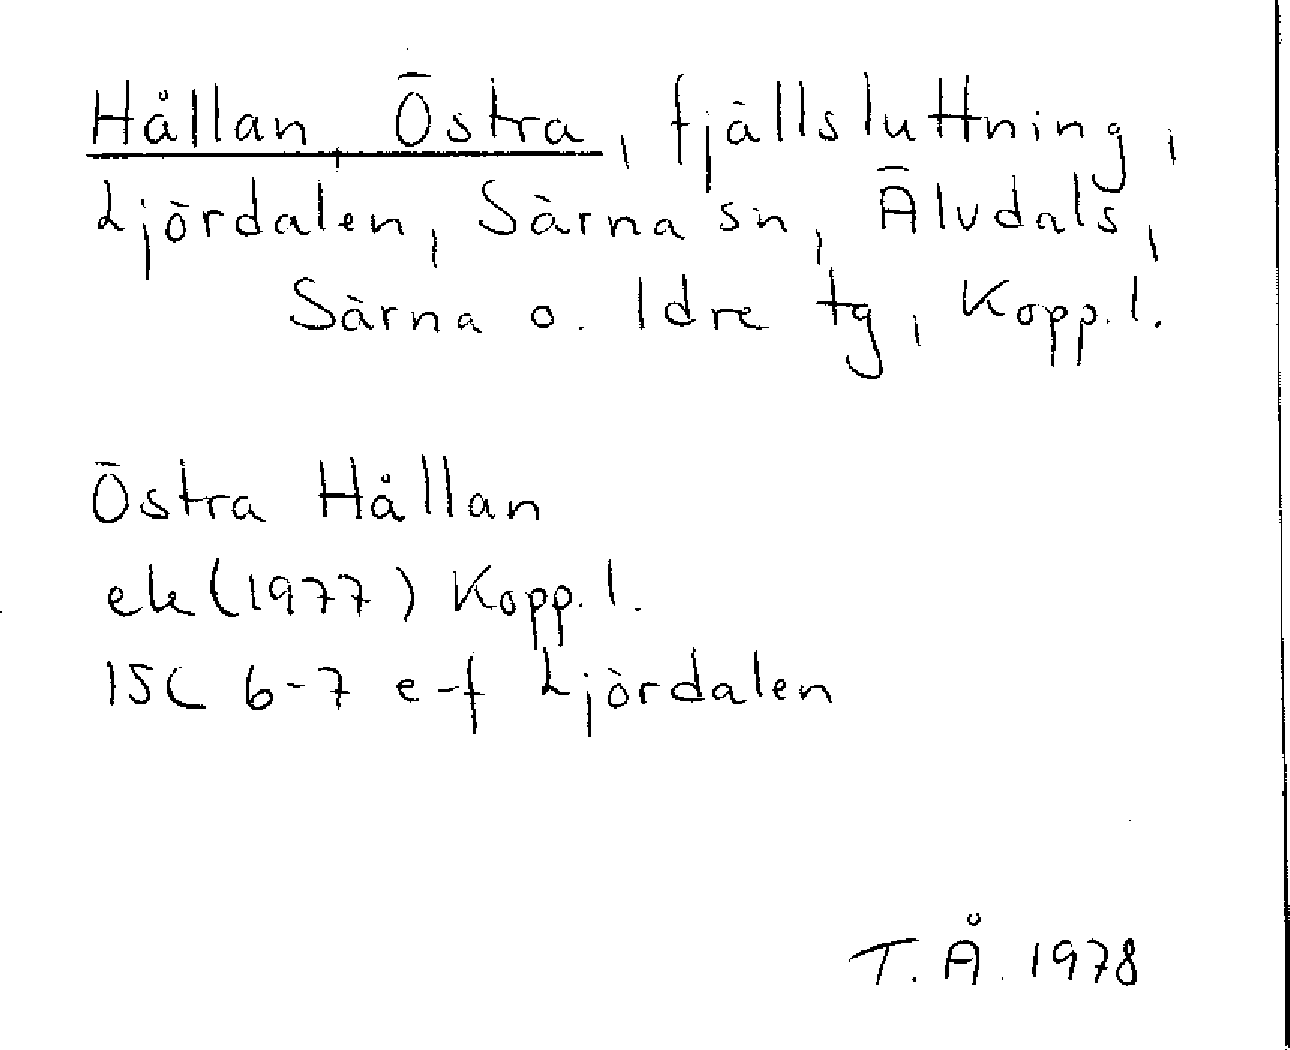 Hållan, Östra, fjällsluttning,
Ljördalen, Särna sn, Älvdals,
Särna o. Idre tg, Kopp. l.
Östra Hållan
ek (1977) Kopp. l.
15C 6-7 e-f Ljördalen
T. Å. 1978